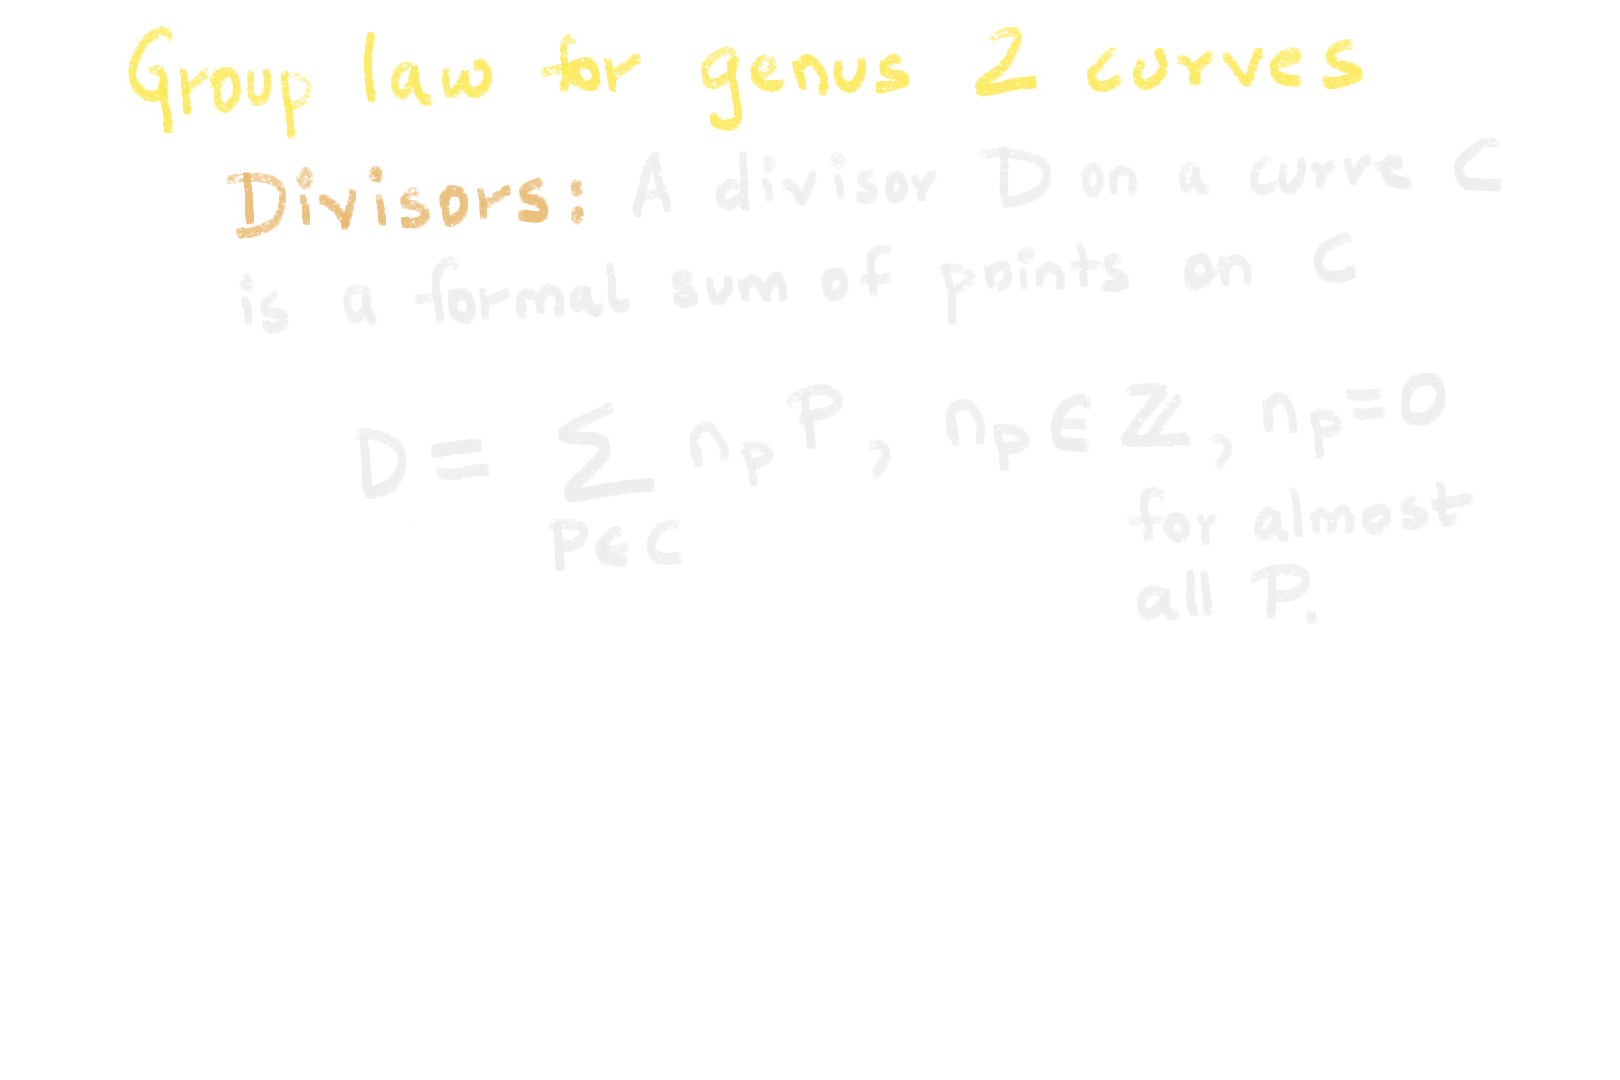 Group law for genus 2 curves
Divisors: A divisor D on a curve C
is a formal sum of points on C
D = ∑ n_p P, n_p ∈ ℤ, n_p = 0
P ∈ C
for almost
all P.